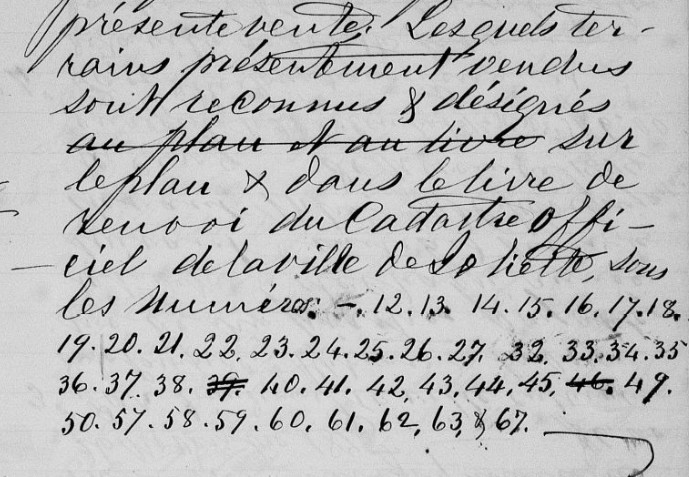 présente vente. Lesquels ter-
rains présentement vendus
sont reconnus & désignés
au plan et au livre sur
le plan & dans le livre de
renvoi du Cadastre Offi-
ciel de la ville de Joliette, sous
les numéros: -. 12. 13. 14. 15. 16. 17. 18.
19. 20. 21. 22. 23. 24. 25. 26. 27. 32. 33. 34. 35
36. 37. 38. 39. 40. 41. 42, 43. 44, 45, 46. 49.
50. 57. 58. 59. 60. 61. 62, 63, & 67.